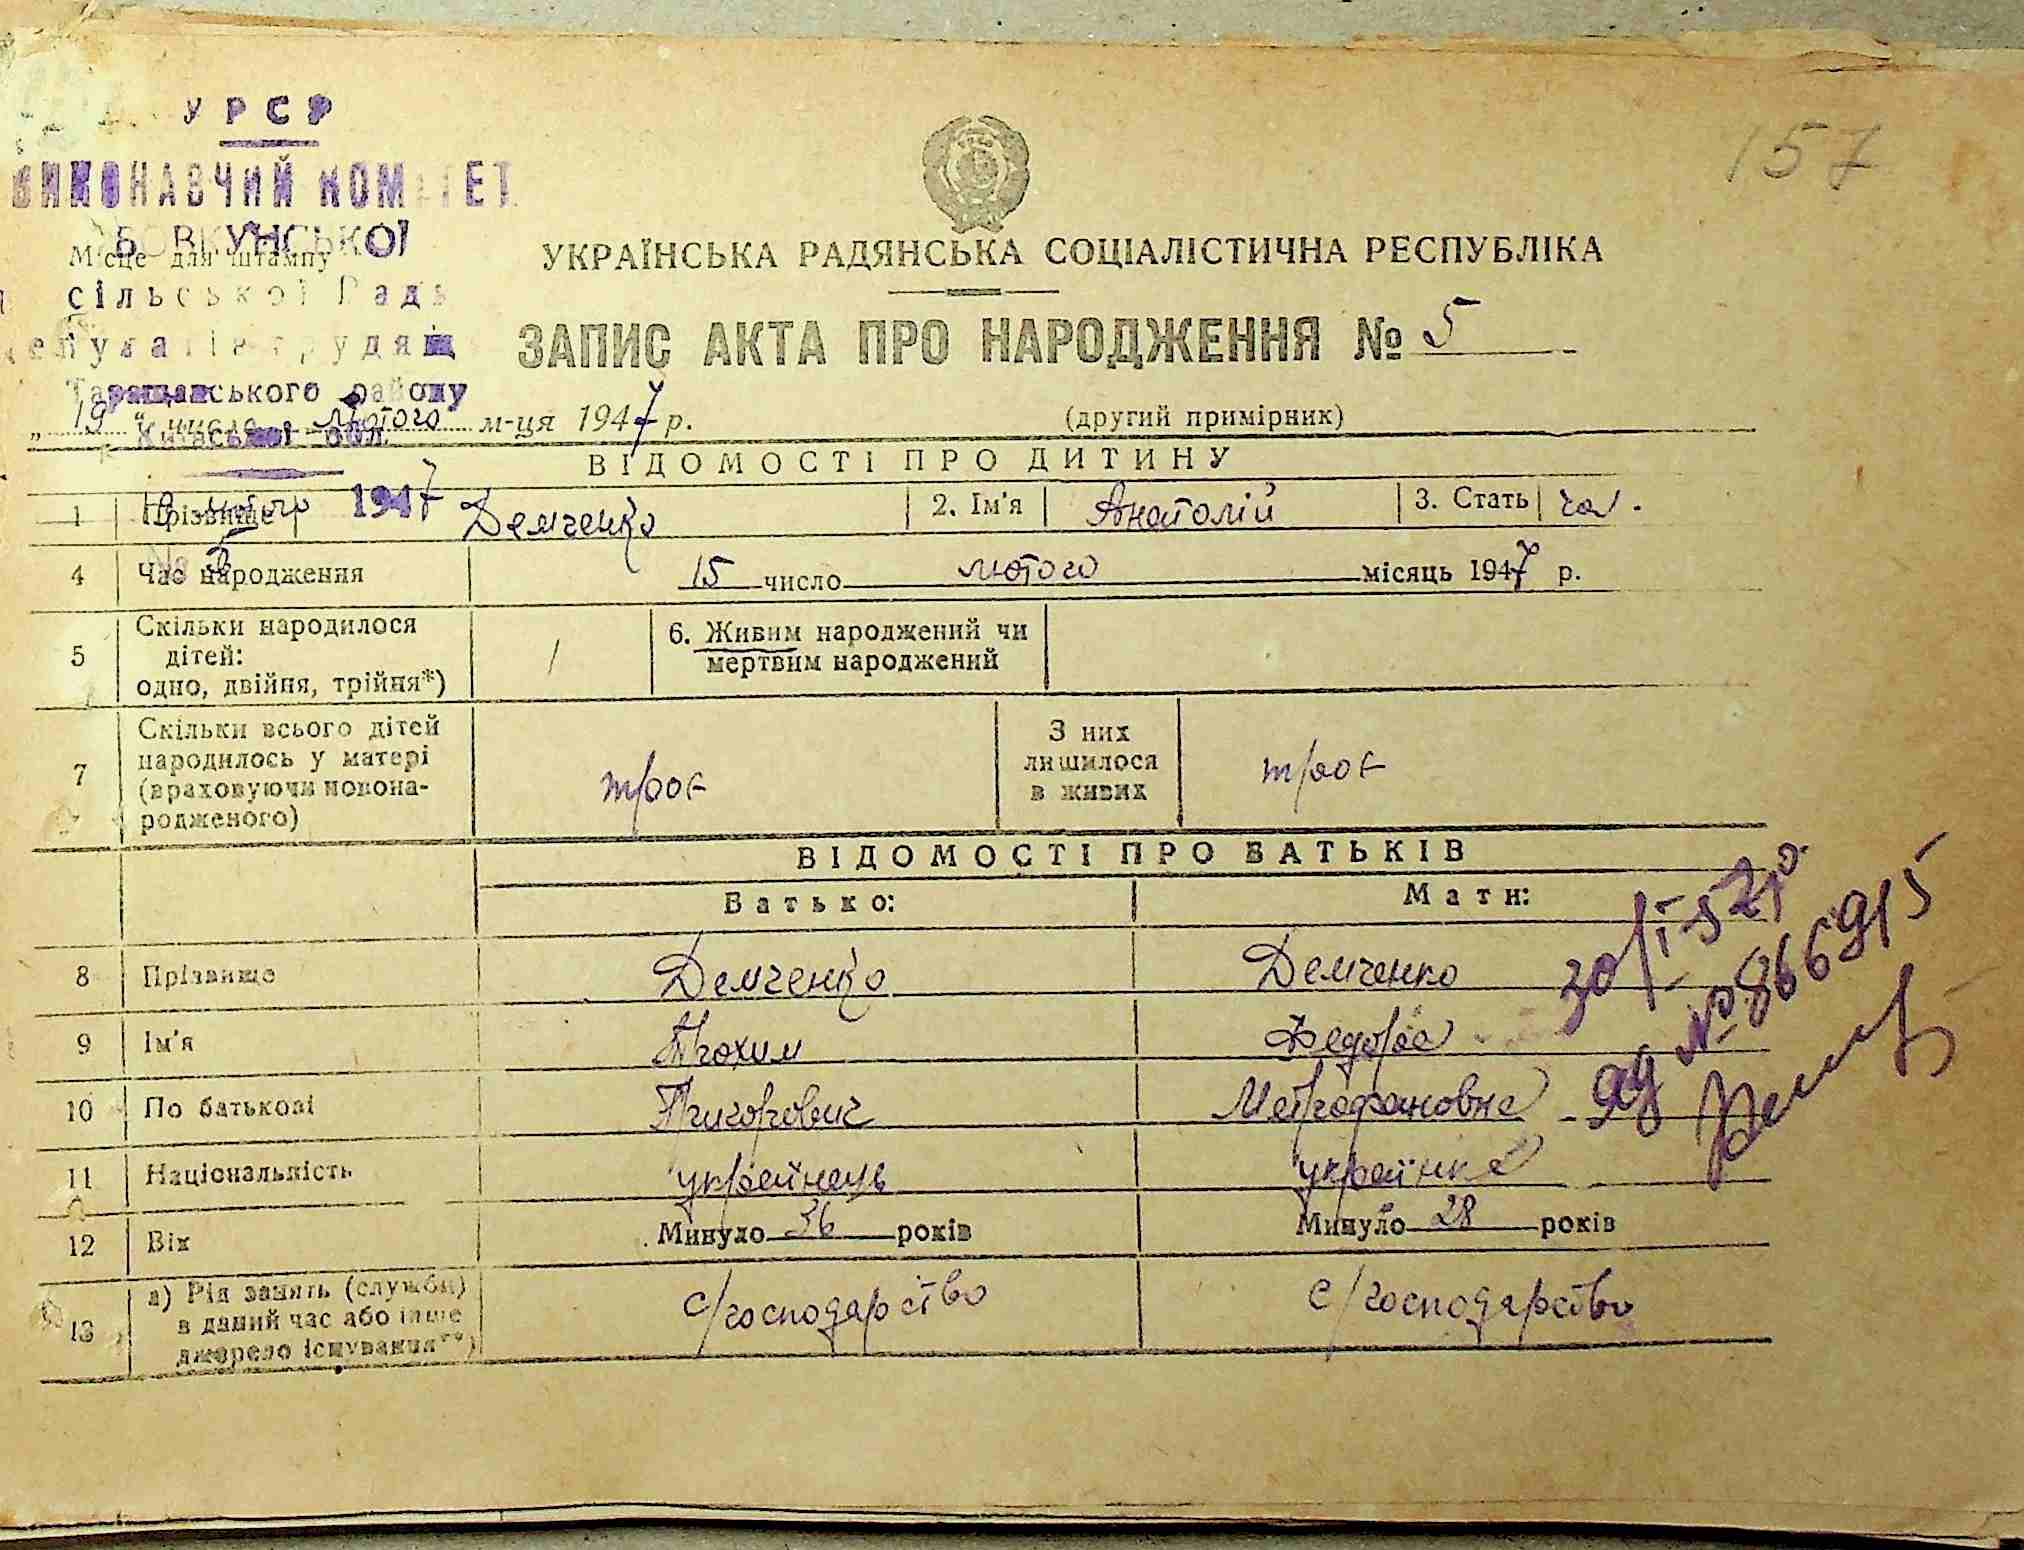 157
УРСР
ВИКОНАВЧИЙ КОМІТЕТ
БОВКУНСЬКОЇ
Місце для штампу
сільської Рад
депутатів трудящ
Таращанського району
Київської обл.
19 лютого 1947
№ 5
УКРАЇНСЬКА РАДЯНСЬКА СОЦІАЛІСТИЧНА РЕСПУБЛІКА
ЗАПИС АКТА ПРО НАРОДЖЕННЯ № 5
„19“ число лютого м-ця 1947 р.
(другий примірник)
ВІДОМОСТІ ПРО ДИТИНУ
1 Прізвище Демченко 2. Ім'я Анатолій 3. Стать чол.
4 Час народження 15 число лютого місяць 1947 р.
5 Скільки народилося дітей: одно, двійня, трійня*) 1 6. Живим народжений чи мертвим народжений
7 Скільки всього дітей народилось у матері (враховуючи новонародженого) троє З них лишилося в живих троє
ВІДОМОСТІ ПРО БАТЬКІВ
Батько: Мати:
8 Прізвище Демченко Демченко
9 Ім'я Трохим Федора
10 По батькові Григорович Митрофановна
11 Національність українець українка
12 Вік Минуло 36 років Минуло 28 років
13 а) Рід занять (служби) в даний час або інше джерело існування**) с/господарство с/господарство
30/I-52 р.
№ 866915